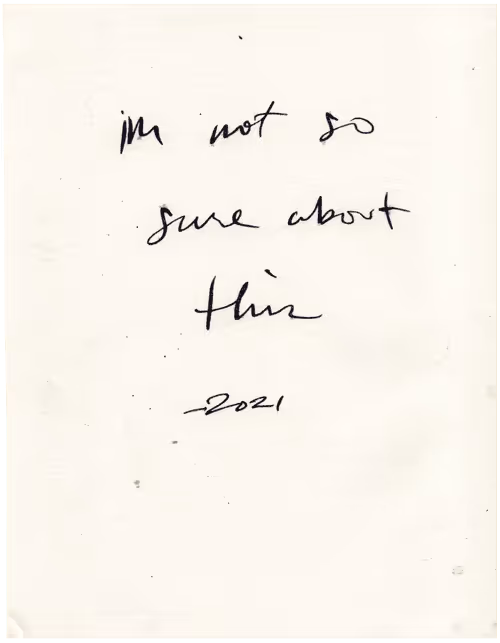 im not so
sure about
this
-2021